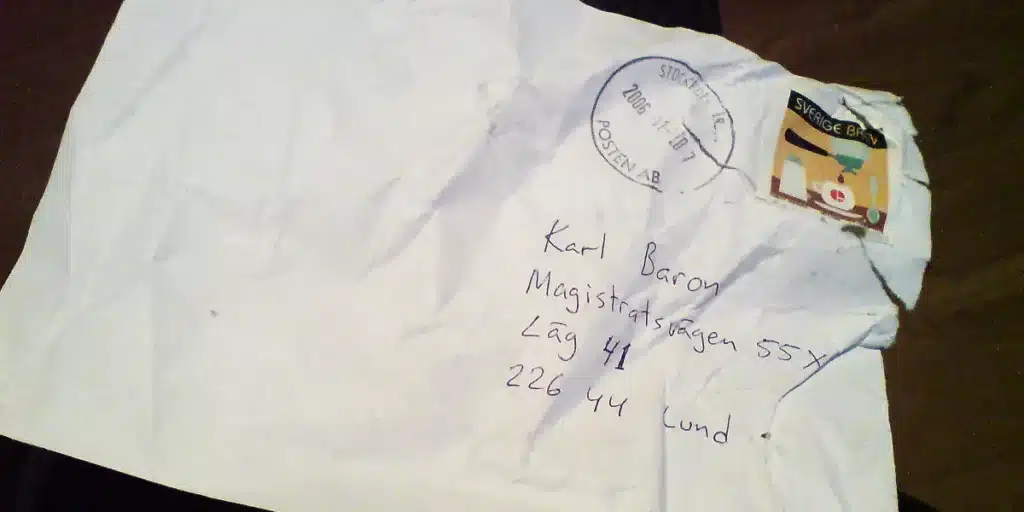 STOCKHOLM
2006
POSTEN AB
SVERIGE BREV
Karl Baron
Magistratsvägen 55X
Läg 41
226 44 Lund